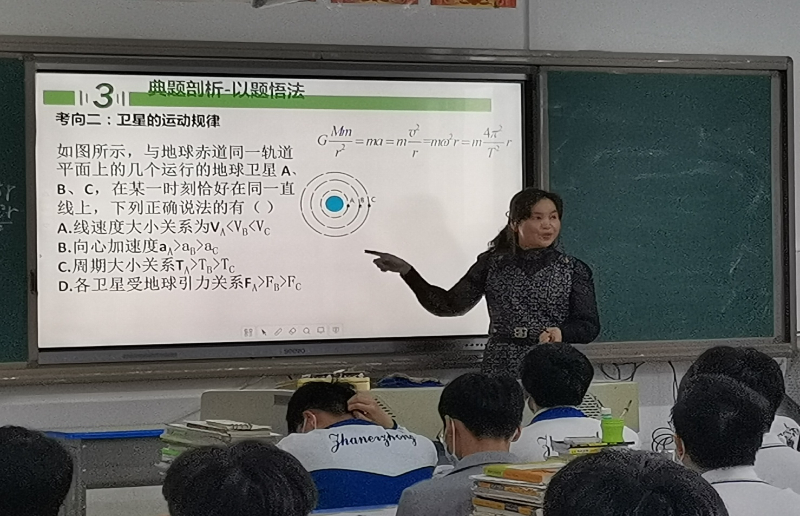 3
典题剖析-以题悟法
考向二：卫星的运动规律
G Mm/r² = ma = m v²/r = mω²r = m 4π²/T² r
如图所示，与地球赤道同一轨道
平面上的几个运行的地球卫星 A、
B、C，在某一时刻恰好在同一直
线上，下列正确说法的有（ ）
A B C
A.线速度大小关系为V_A<V_B<V_C
B.向心加速度a_A>a_B>a_C
C.周期大小关系T_A>T_B>T_C
D.各卫星受地球引力关系F_A>F_B>F_C
seewo
Zhanerzhong